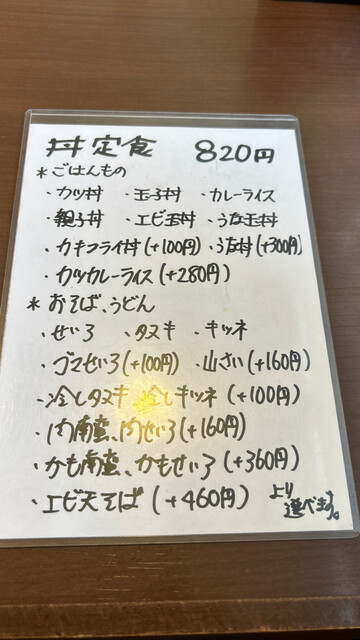 丼定食 820円
*ごはんもの
・カツ丼 ・玉子丼 ・カレーライス
・親子丼 ・エビ玉丼 ・うな玉丼
・カキフライ丼(+100円)・うな丼(+300円)
・カツカレーライス(+280円)
*おそば、うどん
・せいろ ・タヌキ ・キツネ
・ゴマせいろ(+100円) ・山さい(+160円)
・冷しタヌキ 冷しキツネ (+100円)
・肉南蛮、肉せいろ(+160円)
・かも南蛮、かもせいろ (+360円)
・エビ天そば (+460円) より
選べます。